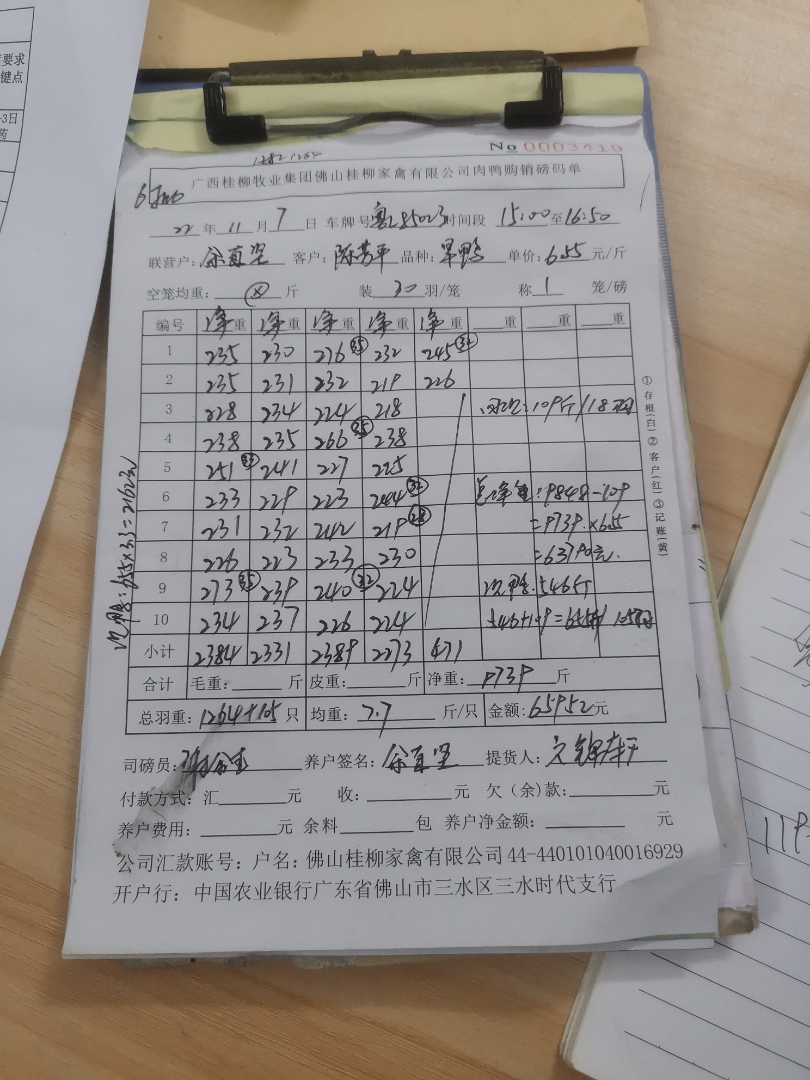 No 0003410
1282 1264
广西桂柳牧业集团佛山桂柳家禽有限公司肉鸭购销磅码单
22 年 11 月 7 日 车牌号 时间段 15:00 至 16:50
联营户: 余直坚 客户: 陈芳平 品种: 旱鸭 单价: 6.55 元/斤
空笼均重: 斤 装 30 羽/笼 称 1 笼/磅
编号 净重 净重 净重 净重 净重 重 重 重
1 235 230 276 35 232 245 32
2 235 231 232 219 226
3 228 234 224 218 109斤/18
4 238 235 266 35 238
5 251 33 241 227 225
6 233 229 223 244 32 总净重: 9848-109
7 231 232 242 219 28 =9739×6.55
8 226 223 233 230 =63790元
9 273 35 239 240 32 224 次鸭: 546斤
10 234 237 226 224 546+109=655斤
小计 2384 2331 2389 2273 471
合计 毛重: 斤 皮重: 斤 净重: 9739 斤
总羽重: 1264+105 只 均重: 7.7 斤/只 金额: 65952 元
司磅员: 养户签名: 余直坚 提货人:
付款方式: 汇 元 收: 元 欠(余)款: 元
养户费用: 元 余料 包 养户净金额: 元
公司汇款账号: 户名: 佛山桂柳家禽有限公司 44-440101040016929
开户行: 中国农业银行广东省佛山市三水区三水时代支行
次鸭: 655×3.3=2162元
①存根(白)②客户(红)③记账(黄)
度要求
键点
-3日
药
119